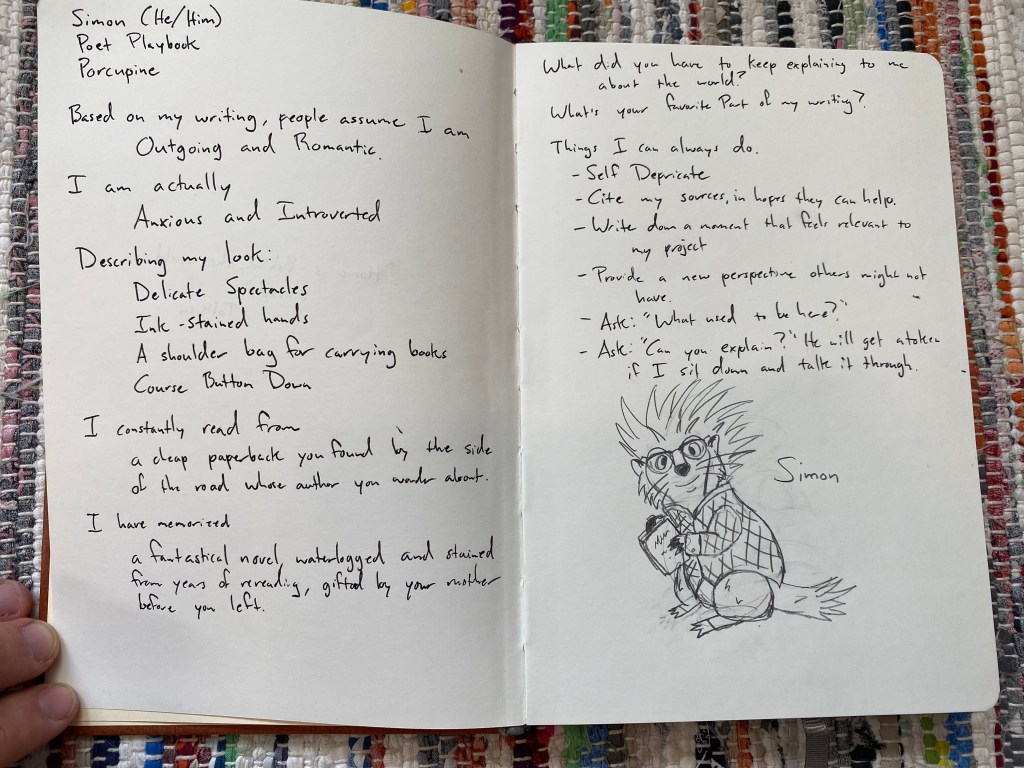 Simon (He/Him)
Poet Playbook
Porcupine
Based on my writing, people assume I am
Outgoing and Romantic.
I am actually
Anxious and Introverted
Describing my look:
Delicate Spectacles
Ink-stained hands
A shoulder bag for carrying books
Course Button Down
I constantly read from
a cheap paperback you found by the side
of the road whose author you wonder about.
I have memorized
a fantastical novel waterlogged and stained
from years of rereading, gifted by your mother
before you left.
What did you have to keep explaining to me
about the world?
What's your favorite Part of my writing?
Things I can always do.
- Self Depricate
- Cite my sources, in hopes they can help.
- Write down a moment that feels relevant to
my project
- Provide a new perspective others might not
have.
- Ask: "What used to be here?"
- Ask: "Can you explain?" He will get a token
if I sit down and talk it through.
Simon